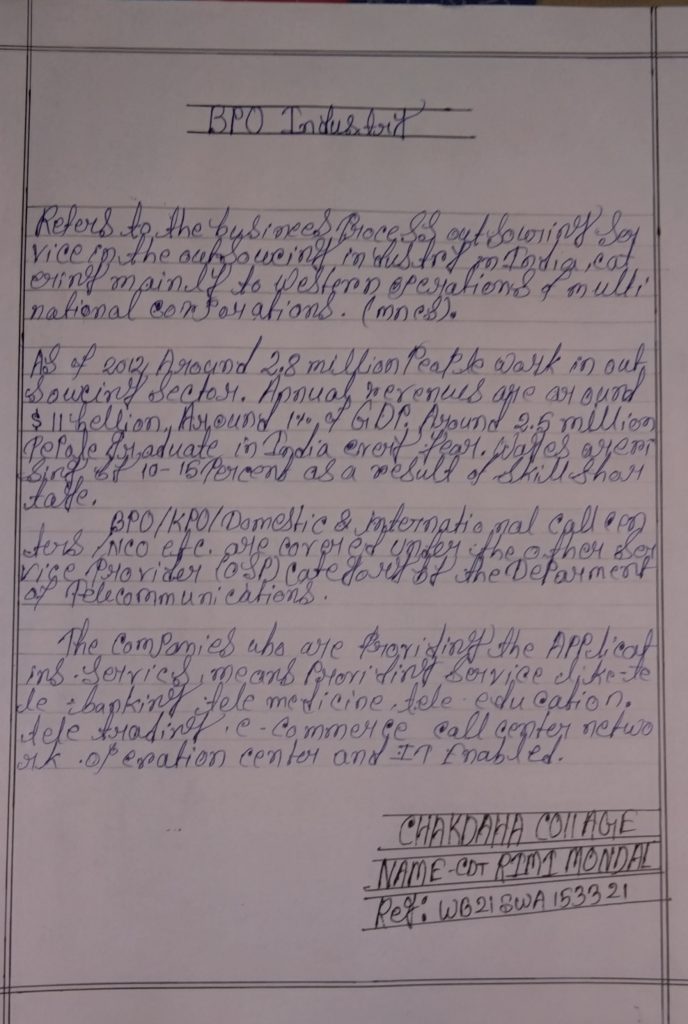 BPO Industry
Refers to the business Process outsourcing Ser
vice in the outsoucing industry in India, cat
ering mainly to Western operations of multi
national corporations. (mncs).
As of 2012, Around 2.8 million People work in out
Soucing Sector. Annual revenues are around
$ 11 bellion, Around 1% of GDP. Around 2.5 million
Pepole graduate in India every year. Wages are ri
sing by 10-15 Percent as a result of skill shor
tage.
BPO/KPO/Domestic & international call cen
ters /NCO etc. are covered under the other Ser
vice Provider (OSP) category of the Deparment
of Telecommunications.
The companies who are Providing the APPlicat
ins Services, means Providing Service like-te
le -banking, tele medicine, tele-education,
tele trading, e-commerce call center netwo
rk operation center and IT Enabled.
CHAKDAHA COllAGE
NAME-CDT RIMI MONDAL
Reg: WB21SWA153321